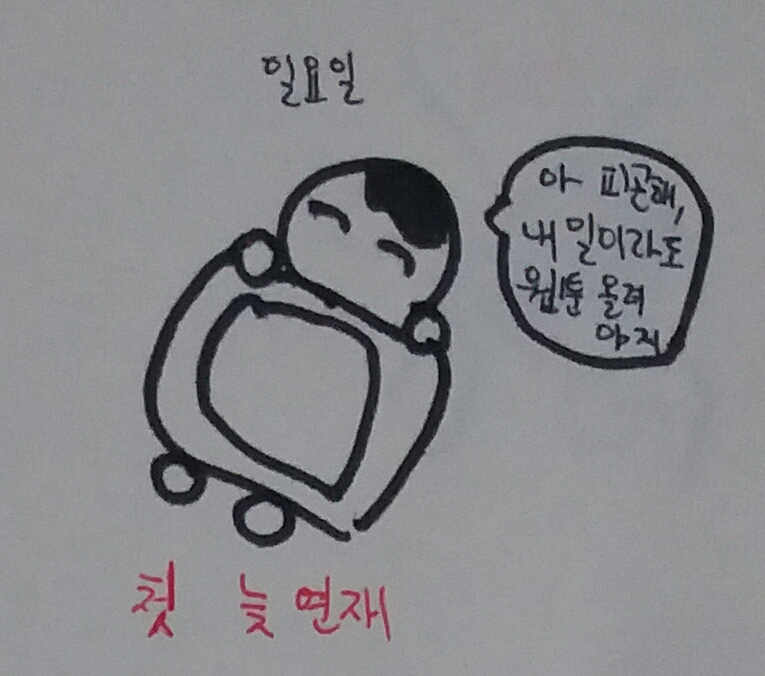 일요일
아 피곤해,
내일이라도
웹툰 올려
야지
첫 늦연재